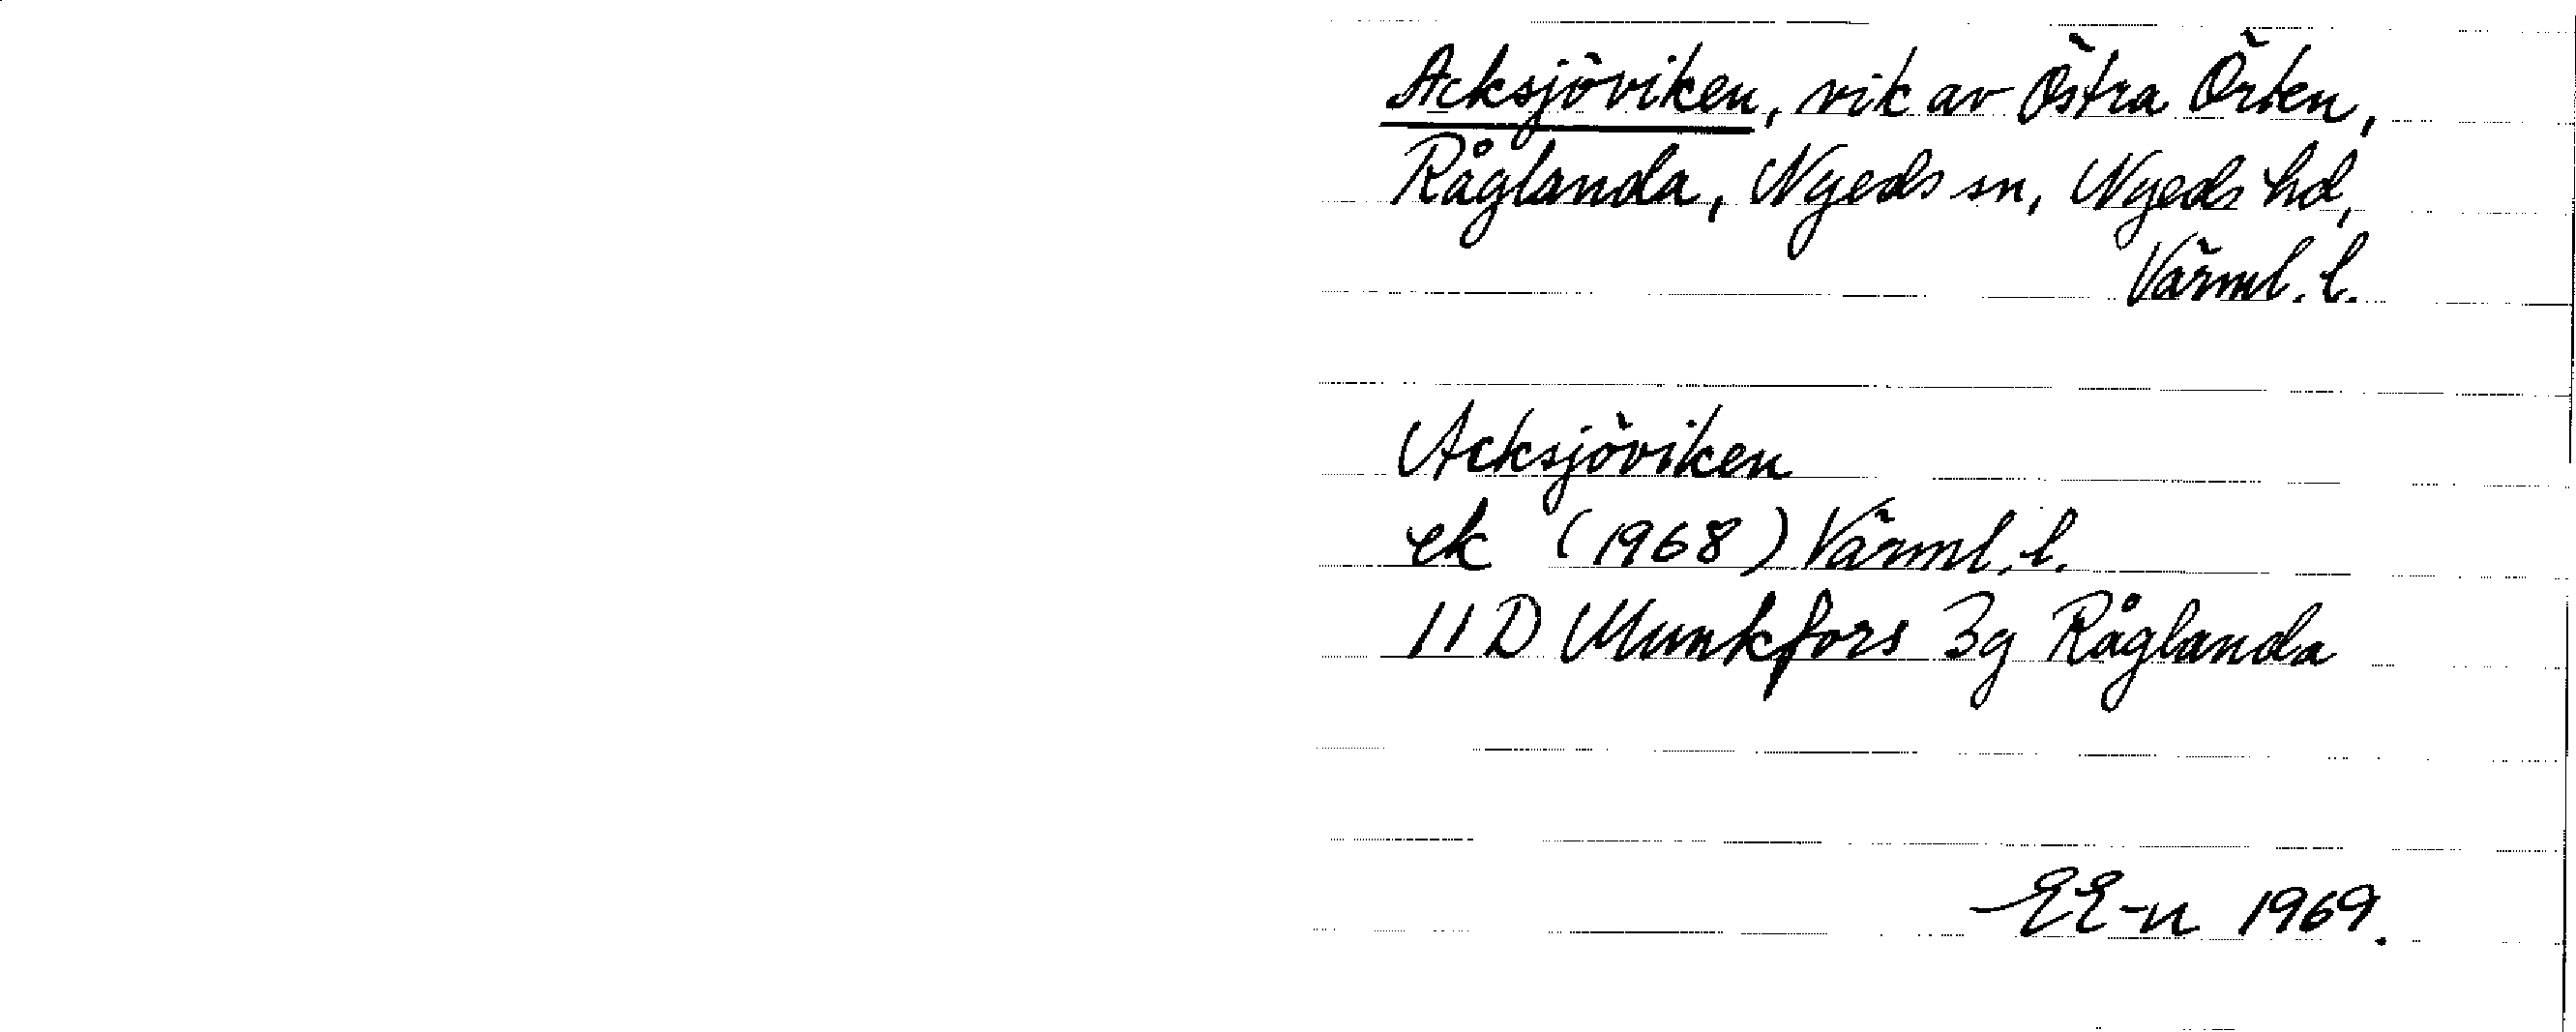 Acksjöviken, vik av Östra Örten,
Råglanda, Nyeds sn, Nyeds hd,
Värml. l.
Acksjöviken
ek (1968) Värml. l.
11 D Munkfors 3g Råglanda
EE-n 1969.